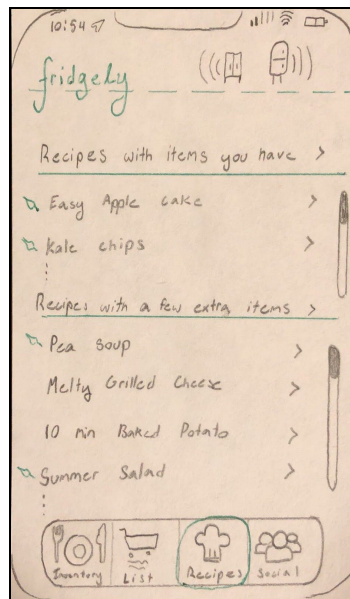 10:54
fridgely
Recipes with items you have >
Easy Apple cake >
Kale chips >
Recipes with a few extra items >
Pea soup >
Melty Grilled Cheese >
10 min Baked Potato >
Summer Salad >
Inventory List Recipes Social